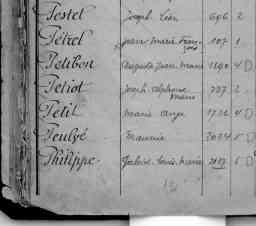 Pestel Joseph Léon 696 2
Pétrel Jean Marie Fran- 107 1
çois
Petibon Auguste Jean Marie 1290 4 D
Petiot Joseph Alphonse 737 2
Marie
Petit Marie Ange 1732 4 D
Peulvé Maurice 2034 5 D
Philippe Louis Marie 5 D